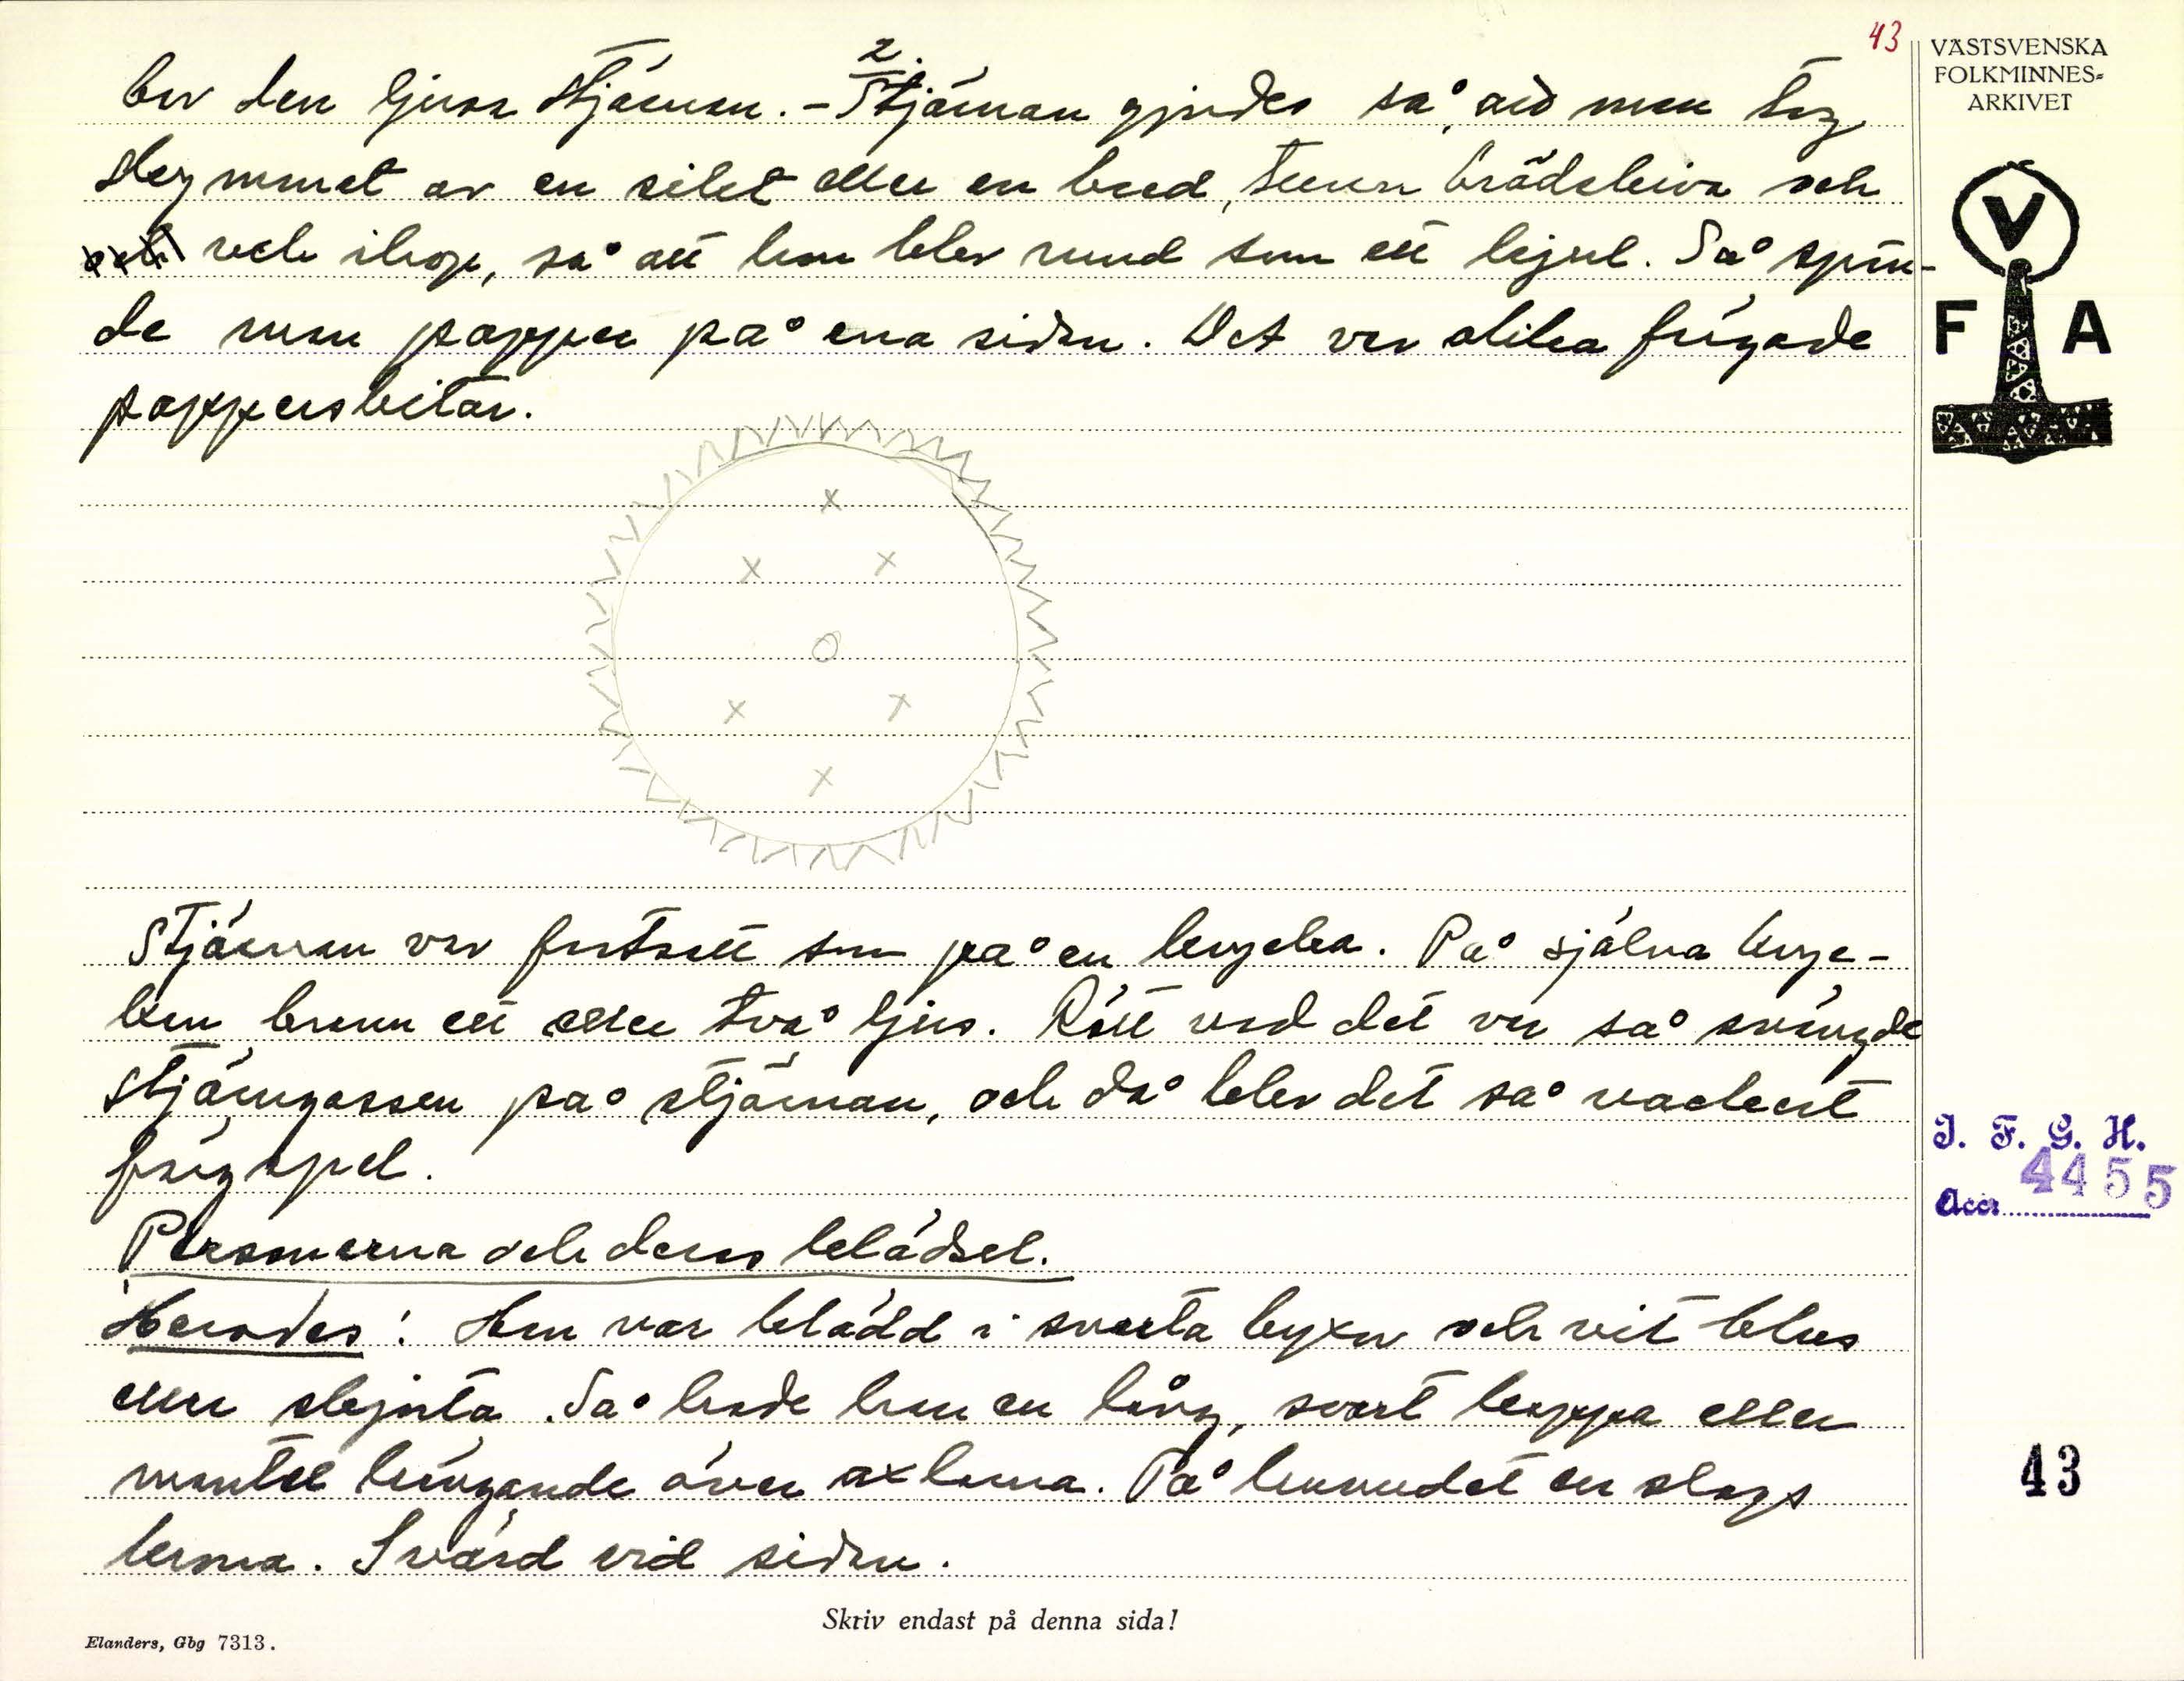 43
bar den ljusa stjärnan. - 2. Stjärnan gjordes så, att man tog
VÄSTSVENSKA
FOLKMINNES-
ARKIVET
av en eller en bred, tunn brädskiva och
och ihop, så att han blev rund som ett hjul. Så spän-
V
F A
de man papper på ena sidan. Det var olika färgade
pappersbitar.
Stjärnan var fortsatt som på en lengelka. På själva
brann ett eller två ljus. Rätt vad det var så svängde
stjärngossen på stjärnan, och då blev det så vackert
färgspel.
I. F. G. H.
4455
Acc.
Personerna och deras klädsel.
Herodes: Han var klädd i svarta byxor och vit blus
eller skjorta. Så hade han en lång, svart kappa eller
mantel hängande över axlarna. På huvudet en slags
43
krona. Svärd vid sidan.
Skriv endast på denna sida!
Elanders, Gbg 7313.